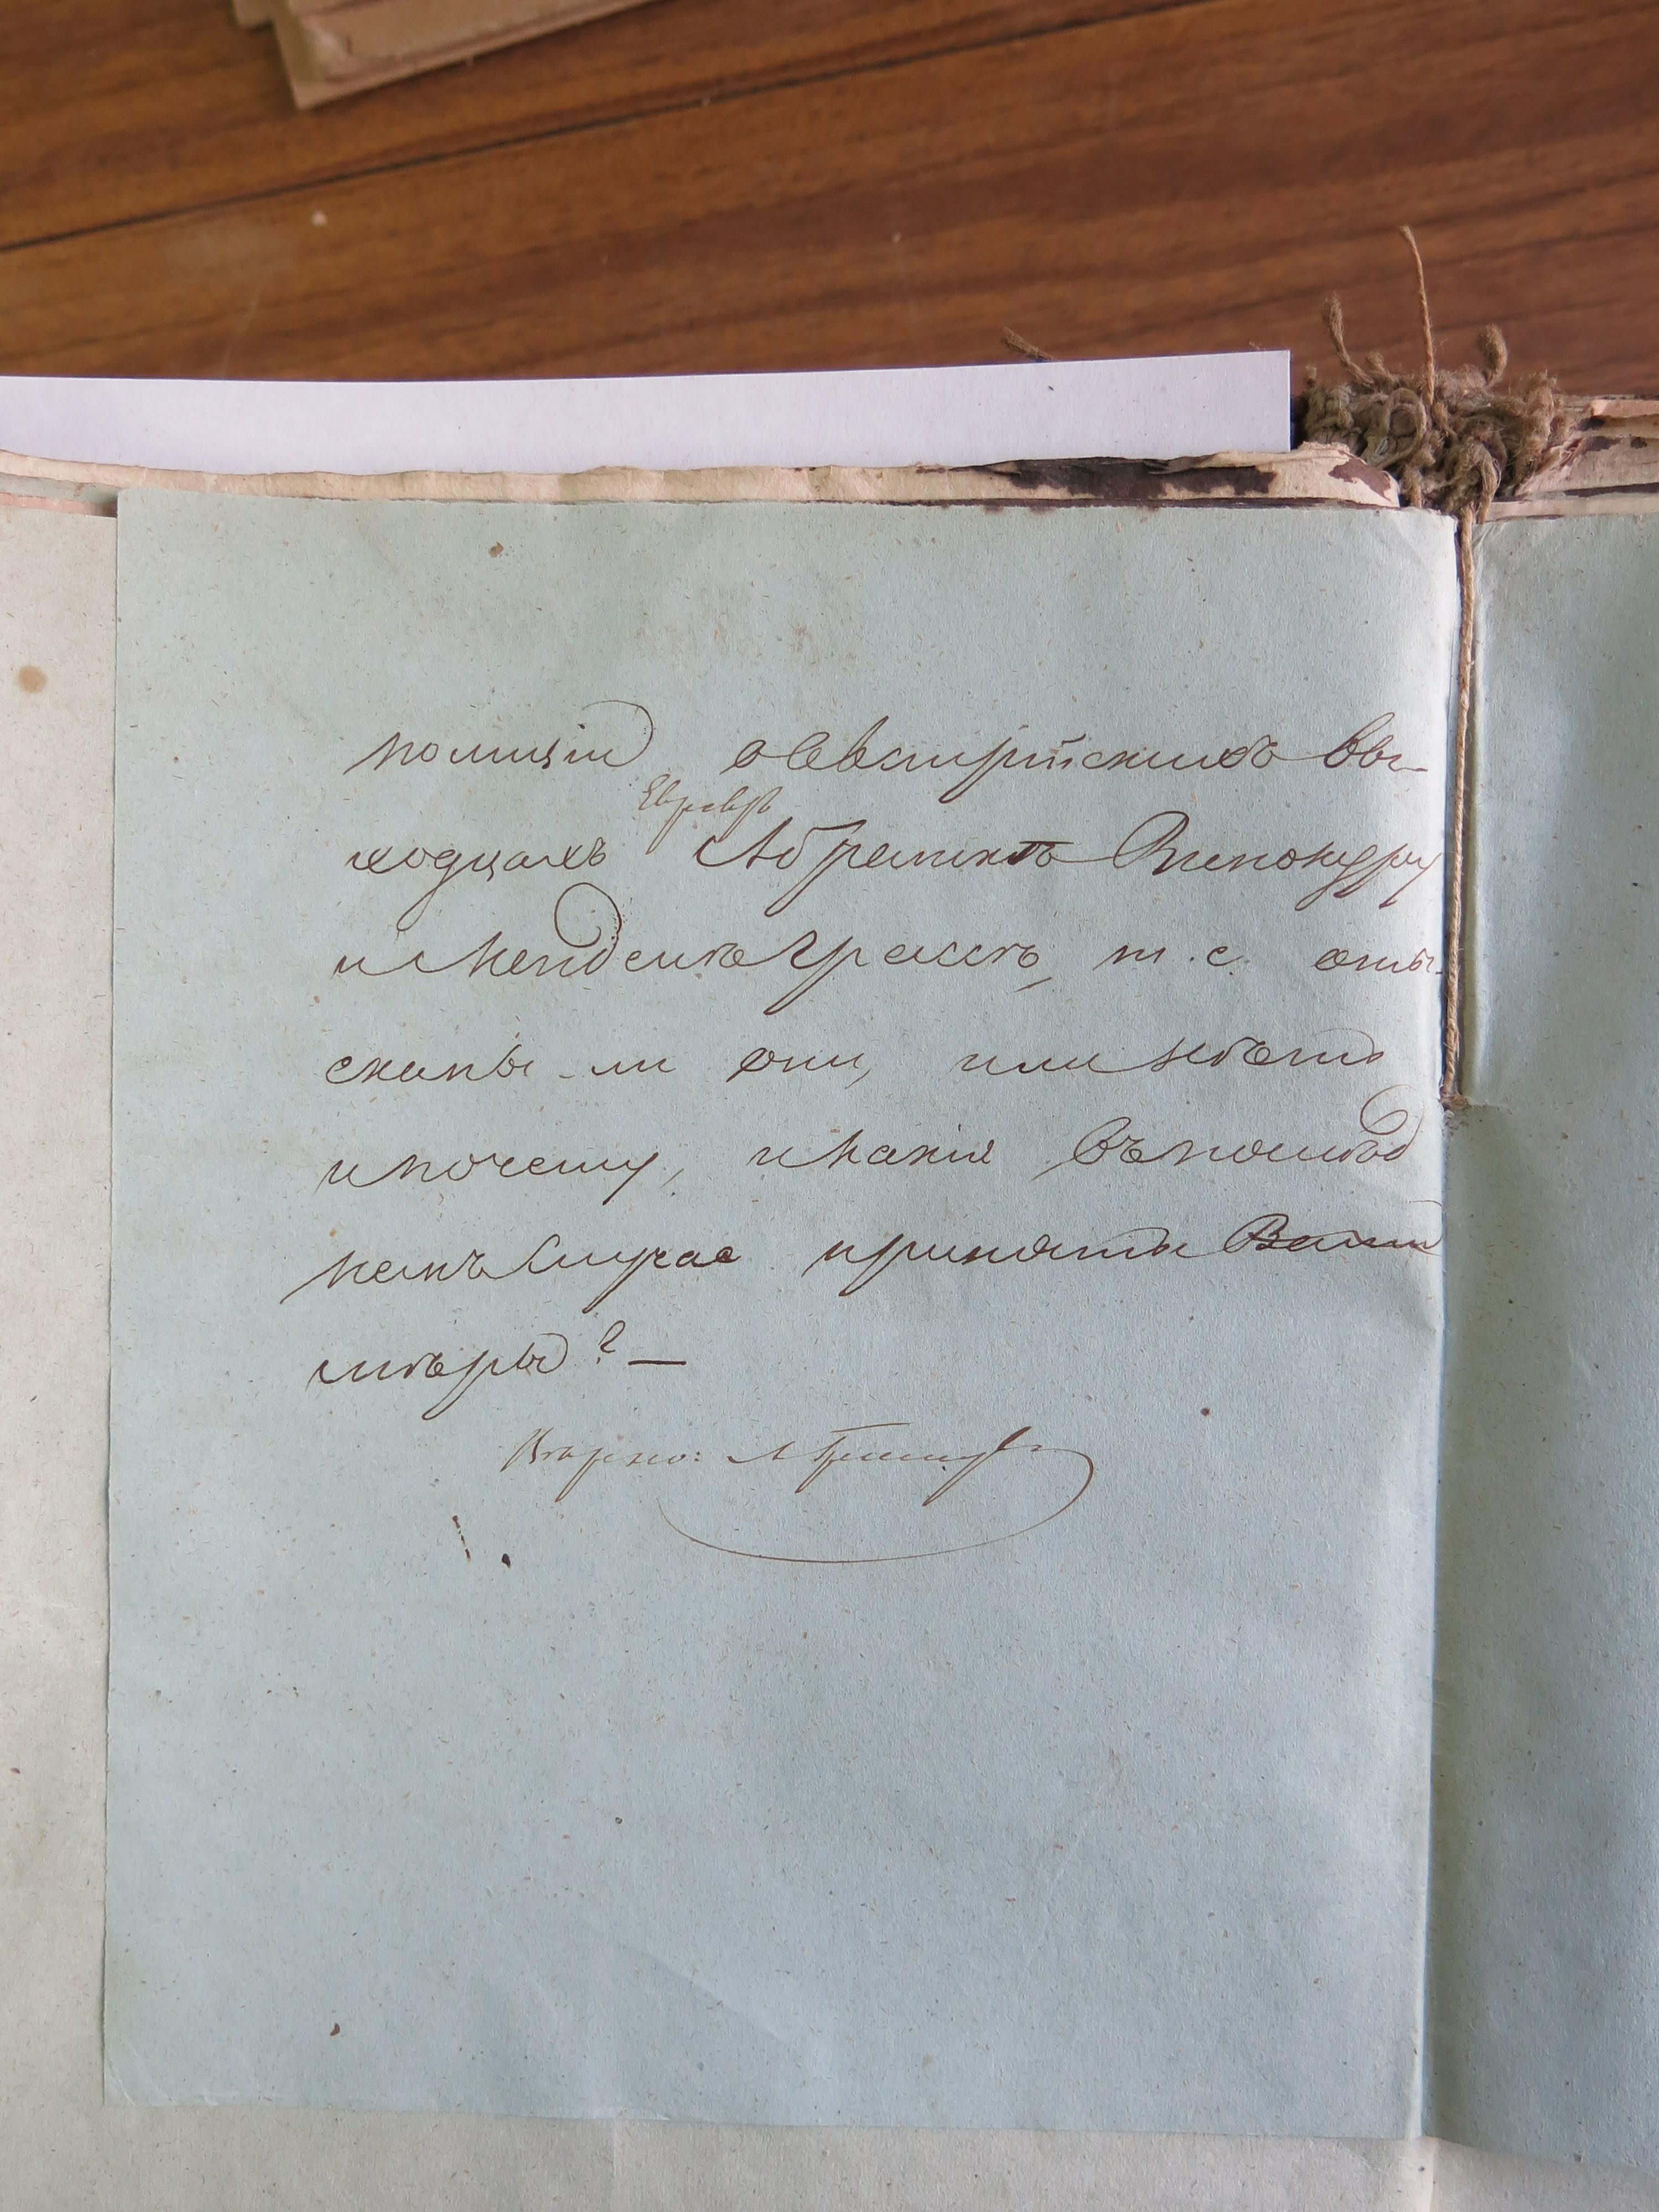 полиціи о Австрійскихъ вы-
ходцахъ Абрамкѣ Винокуру
и Менделѣ Грассѣ, т. е. оты-
сканы-ли они, или нѣтъ
и почему, и какія въ послѣд
немъ случаѣ приняты
мѣры? —
Вѣрно: